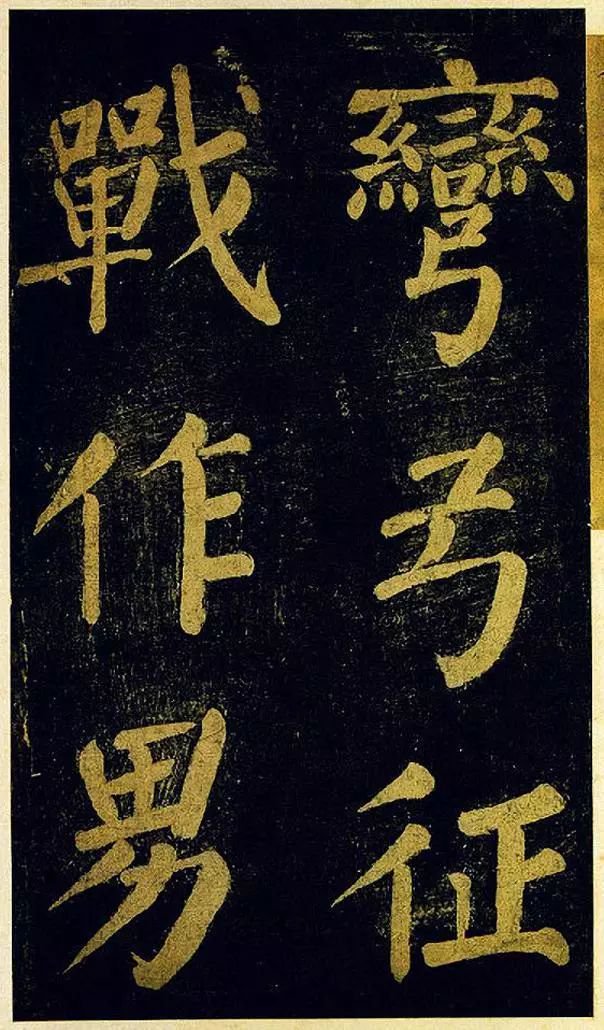 彎弓征
戰作男